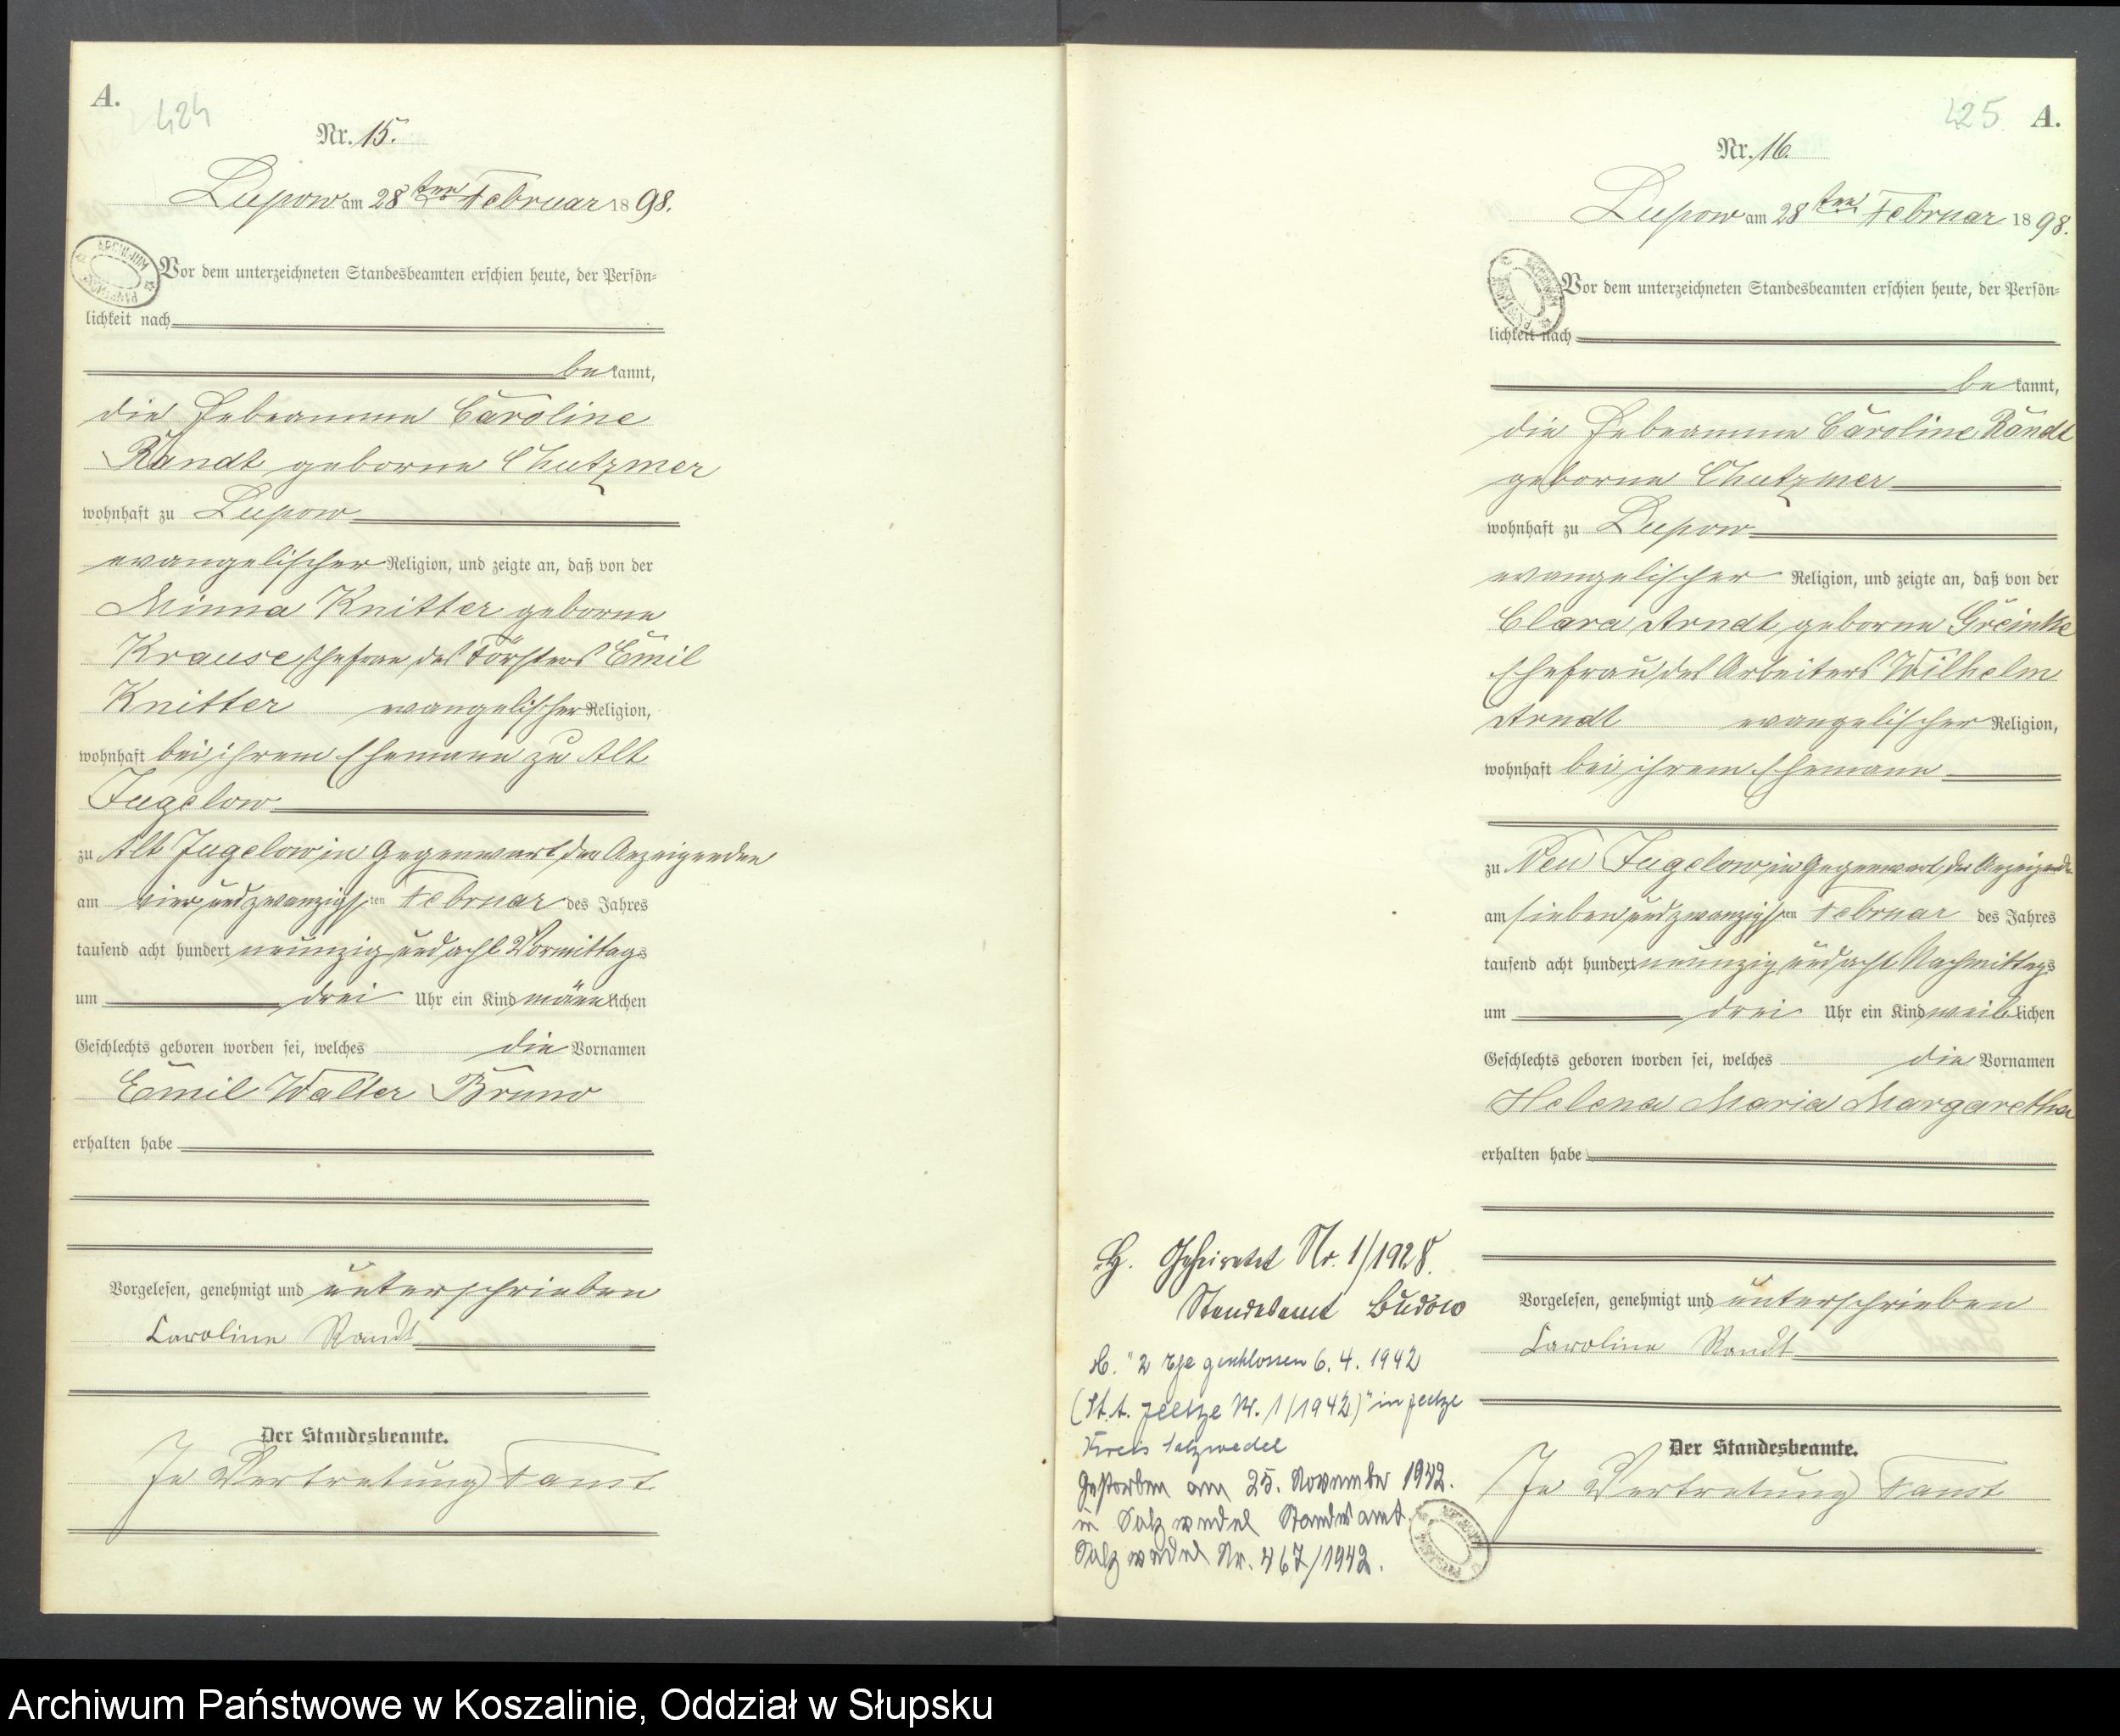 A.
424
Nr. 15.
Lupow am 28ten Februar 1898.
Vor dem unterzeichneten Standesbeamten erschien heute, der Persön=
lichkeit nach
be kannt,
die Hebeamme Caroline
Randt geborne Chutzmer
wohnhaft zu Lupow
evangelischer Religion, und zeigte an, daß von der
Minna Knitter geborne
Krause Ehefrau des Försters Emil
Knitter evangelischer Religion,
wohnhaft bei ihrem Ehemann zu Alt
Jugelow
zu Alt Jugelow in Gegenwart der Anzeigenden
am vier und zwanzigsten Februar des Jahres
tausend acht hundert neunzig und acht Vormittags
um drei Uhr ein Kind männlichen
Geschlechts geboren worden sei, welches die Vornamen
Emil Walter Bruno
erhalten habe
Vorgelesen, genehmigt und unterschrieben
Caroline Randt
Der Standesbeamte.
In Vertretung
425
A.
Nr. 16.
Lupow am 28ten Februar 1898.
Vor dem unterzeichneten Standesbeamten erschien heute, der Persön=
lichkeit nach
be kannt,
die Hebeamme Caroline Randt
geborne Chutzmer
wohnhaft zu Lupow
evangelischer Religion, und zeigte an, daß von der
Clara Arndt, geborne Greinke
Ehefrau des Arbeiters Wilhelm
Arndt evangelischer Religion,
wohnhaft bei ihrem Ehemann
zu Neu Jugelow in Gegenwart der Anzeigenden
am sieben und zwanzigsten Februar des Jahres
tausend acht hundert neunzig und acht Nachmittags
um drei Uhr ein Kind weiblichen
Geschlechts geboren worden sei, welches die Vornamen
Helena Maria Margaretha
erhalten habe
Vorgelesen, genehmigt und unterschrieben
Caroline Randt
Der Standesbeamte.
In Vertretung
H. Geheiratet Nr. 1/1928.
Standesamt Budow
H. "2 Ehe geschlossen 6. 4. 1942
(St. A. Jeetze Nr. 1/1942)" in Jeetze
Kreis Salzwedel
Gestorben am 25. November 1942.
in Salzwedel Standesamt
Salzwedel Nr. 467/1942.
Archiwum Państwowe w Koszalinie, Oddział w Słupsku